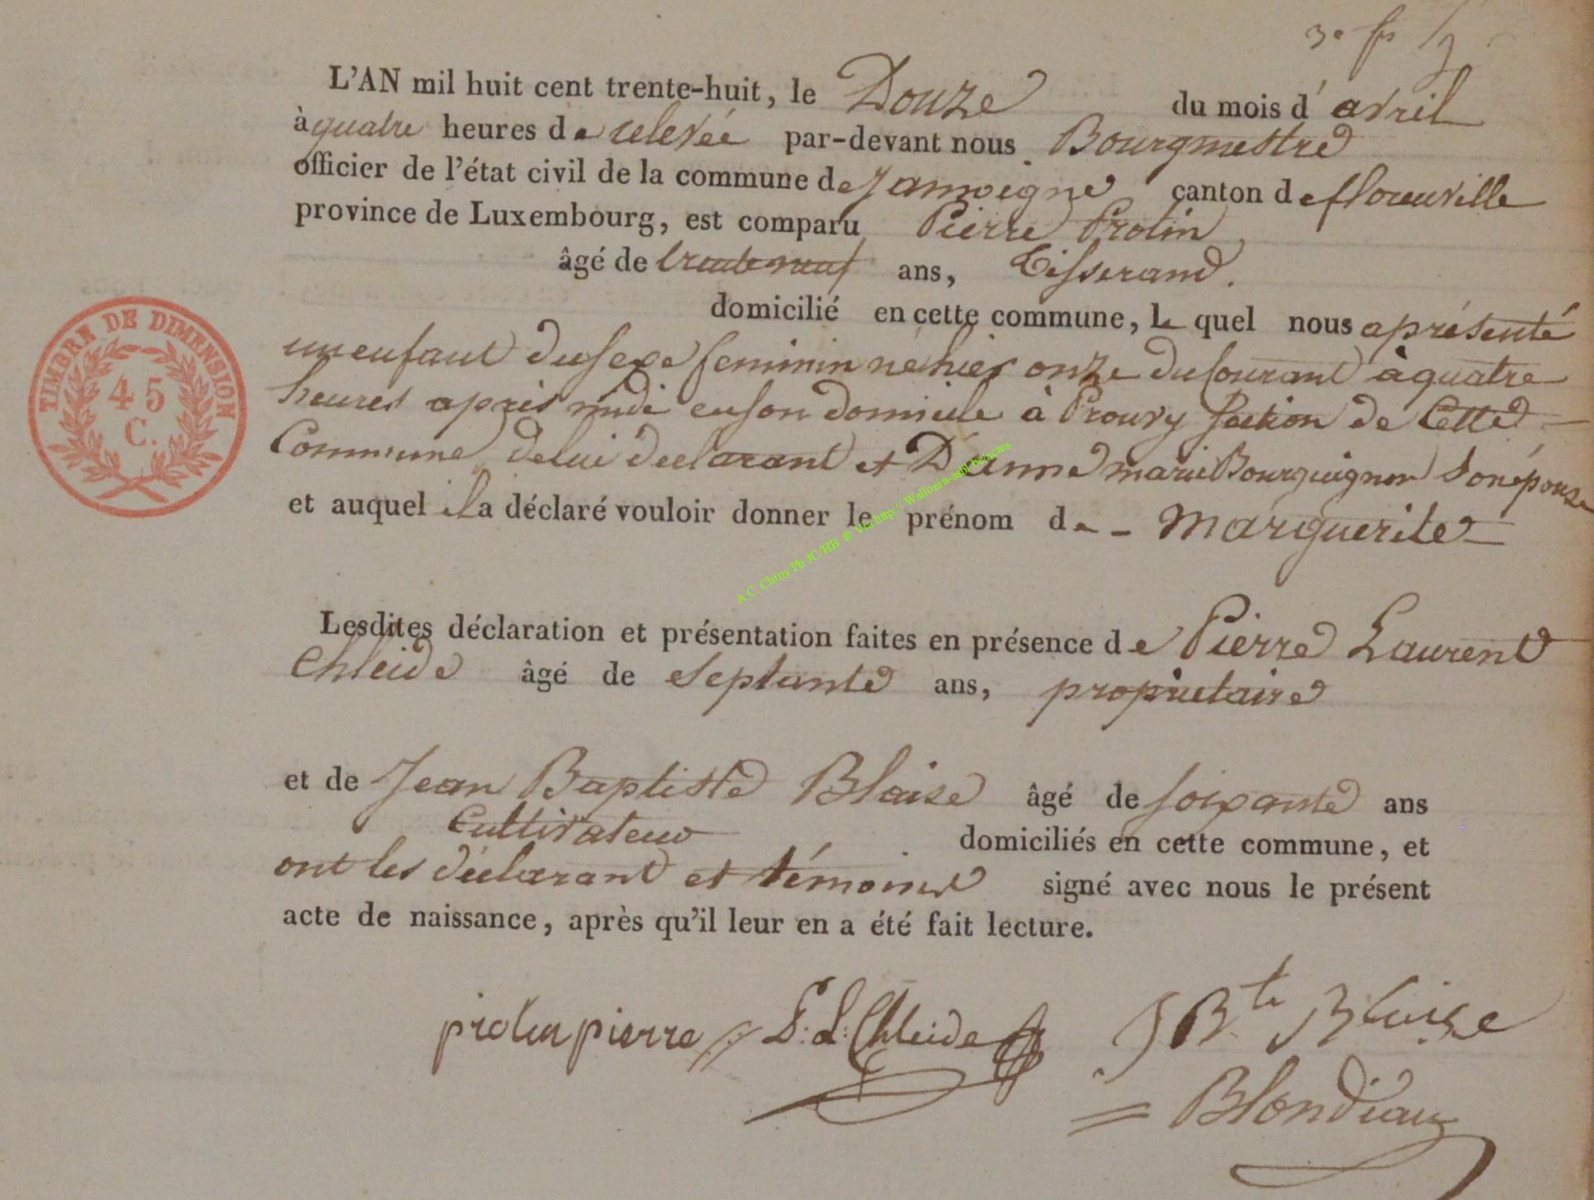 L'AN mil huit cent trente-huit, le Douze du mois d' avril
à quatre heures de relevée par-devant nous Bourgmestre
officier de l'état civil de la commune de Jamoigne canton de florenville
province de Luxembourg, est comparu Pierre Prolin
âgé de trente neuf ans, Tisserand.
domicilié en cette commune, Le quel nous a présenté
un enfant du sexe feminin né hier onze du Courant à quatre
heures après midi en son domicile à Prouvy Section de Cette
Commune de lui declarant et D'anne marie Bourguignon Son épouse
et auquel il a déclaré vouloir donner le prénom de - Marguerite
Lesdites déclaration et présentation faites en présence de Pierre Laurent
Chleide âgé de Septante ans, propriétaire
et de Jean Baptiste Blaise âgé de soixante ans
Cultivateur domiciliés en cette commune, et
ont les déclarant et témoins signé avec nous le présent
acte de naissance, après qu'il leur en a été fait lecture.
prolin pierre P. L. Chleide J Bte Blaise
Blondiau
TIMBRE DE DIMENSION
45
C.
A.C. Chiny Ph JC/HB @